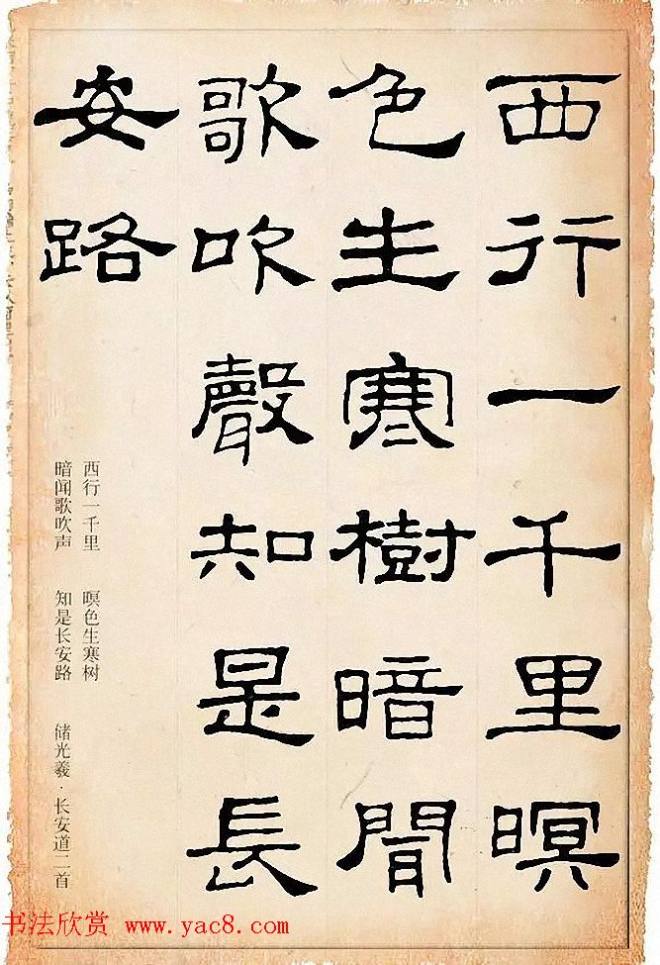 西行一千里暝
色生寒樹暗聞
歌吹聲知是長
安路
西行一千里 暝色生寒树
暗闻歌吹声 知是长安路 储光羲·长安道二首
书法欣赏 www.yac8.com